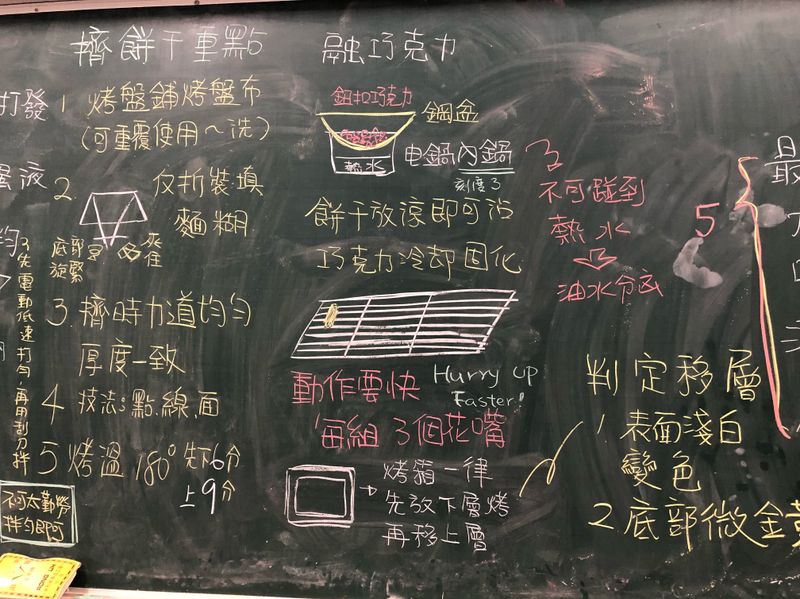 擠餅干重點
1 烤盤鋪烤盤布
(可重覆使用～洗)
2. 反折裝填
麵糊
底部
旋緊
夾住
3. 擠時力道均勻
厚度一致
4 技法：點、線、面
5 烤溫 180° 先下6分
上9分
打發
蛋液
先電動低速打勻，再用刮刀拌
不可太勤勞
拌勻即可
融巧克力
鈕扣巧克力
鋼盆
熱水
电鍋內鍋
刻度3
不可碰到
熱水
油水分离
餅干放凉即可沾
巧克力冷却固化
動作要快
Hurry up
Faster!
每組 3個花嘴
烤箱一律
先放下層烤
再移上層
最
5
判定移層
1. 表面淺白
變色
2. 底部微金黃